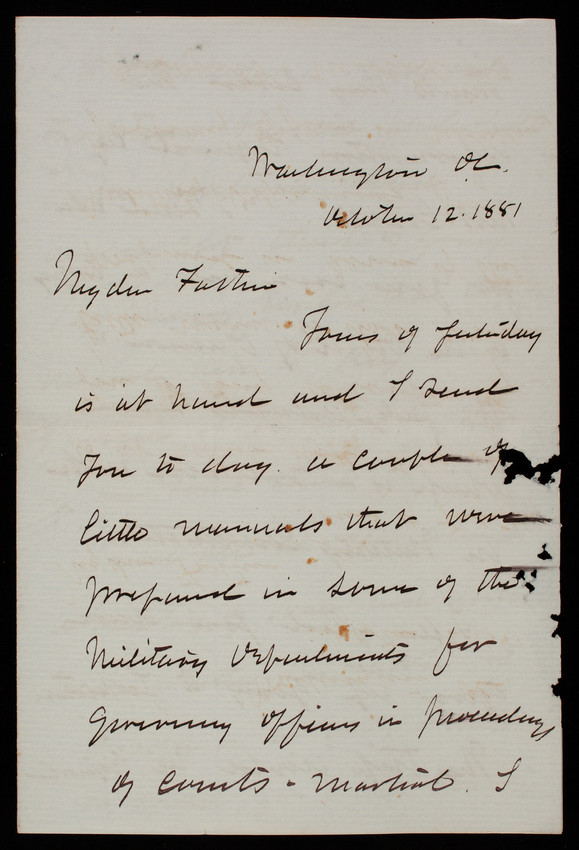 Washington DC.
October 12. 1881
My dear
Yours of yesterday
is at hand and I send
you to day a couple of
little manuals that were
prepared in some of the
Military Departments for
governing officers in proceedings
of courts-martial. I